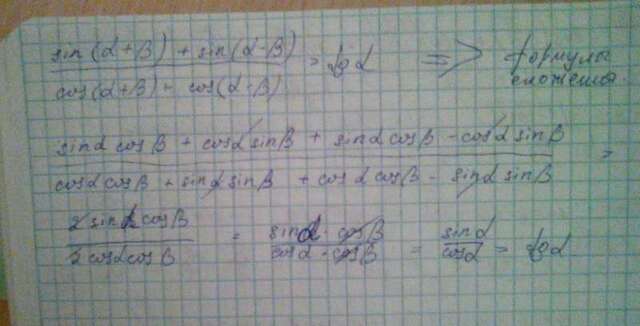 sin(α+β) + sin(α-β) / cos(α+β) - cos(α-β) = tgα => формулы сложения.
sinα cosβ + cosα sinβ + sinα cosβ - cosα sinβ / cosα cosβ + sinα sinβ + cosα cosβ - sinα sinβ =
2 sinα cosβ / 2 cosα cosβ = sinα · cosβ / cosα · cosβ = sinα / cosα = tgα